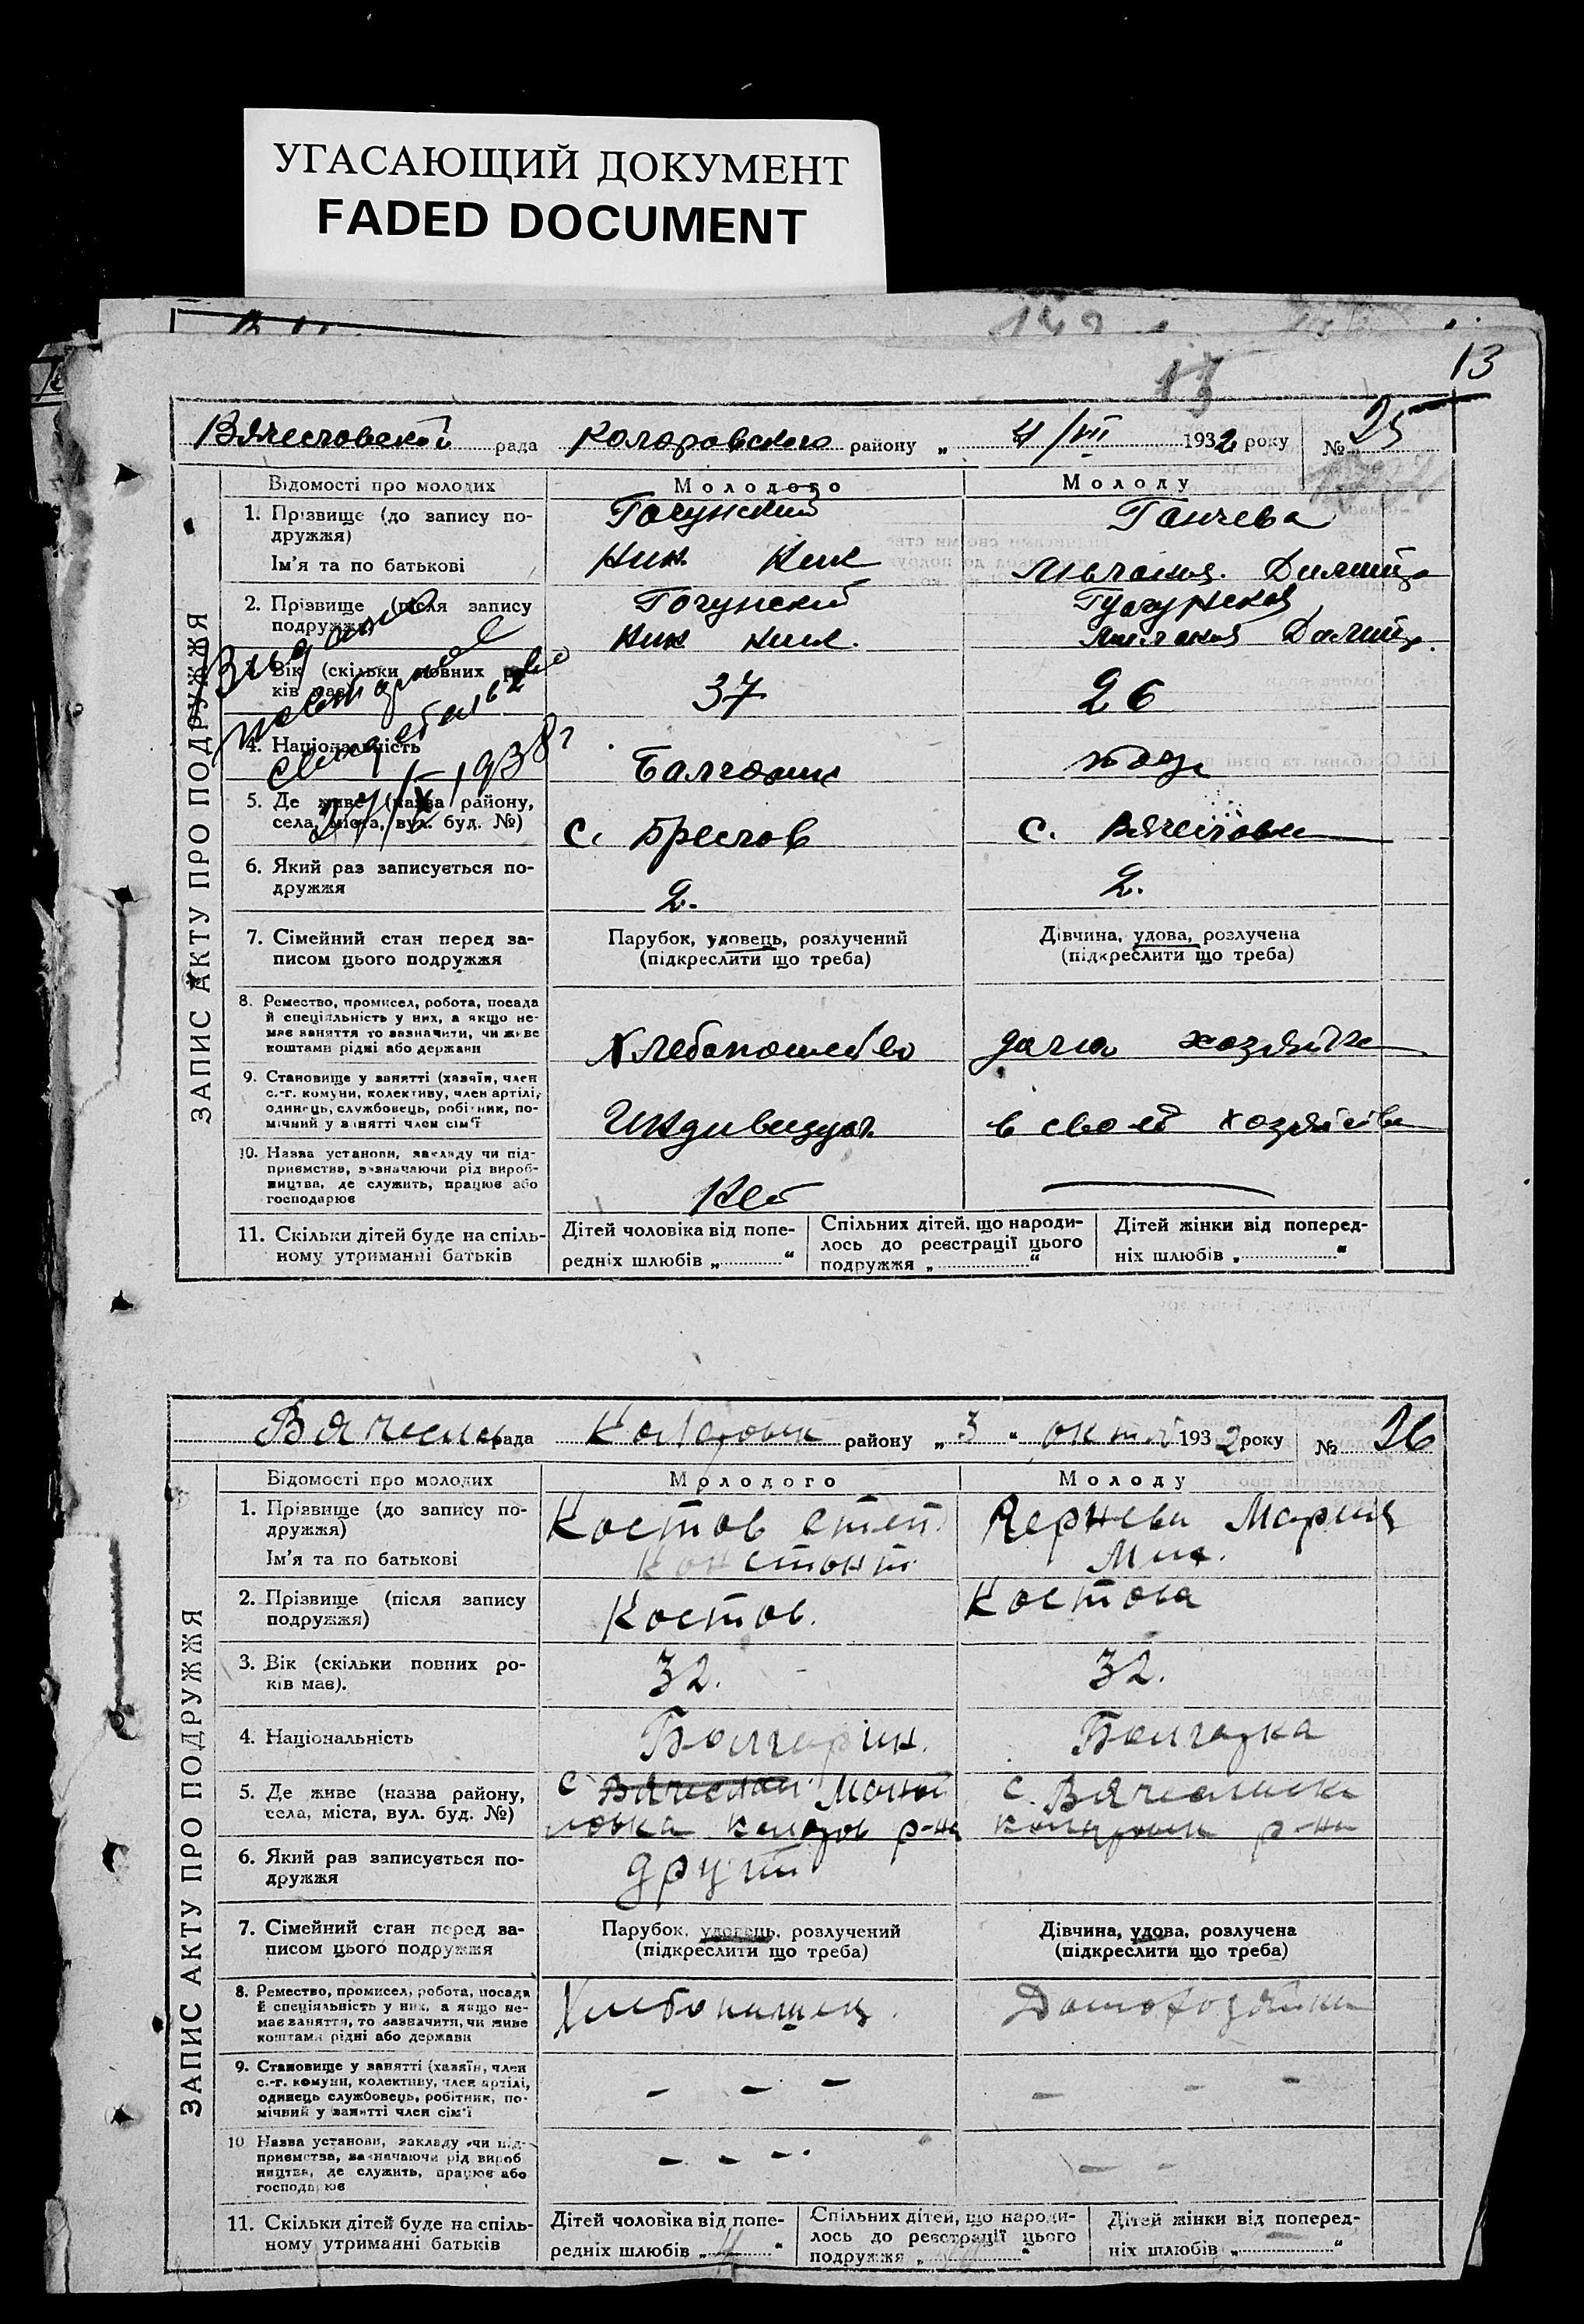 УГАСАЮЩИЙ ДОКУМЕНТ
FADED DOCUMENT
13
13
Вячеславской рада Коларовского району „ 4/VII 1932 року № 25
ЗАПИС АКТУ ПРО ПОДРУЖЖЯ
Відомості про молодих
Молодого
Молоду
1. Прізвище (до запису по-
дружжя)
Ім'я та по батькові
Ник Ник
Ганчева
2. Прізвище (після запису
подружжя)
Ник Ник.
3. Вік (скільки повних ро-
ків має)
37
26
4. Національність
Болгарин
тоже
5. Де живе (назва району,
села, міста, вул. буд. №)
с.
с. Вячеславка
6. Який раз записується по-
дружжя
2.
2.
7. Сімейний стан перед за-
писом цього подружжя
Парубок, удовець, розлучений
(підкреслити що треба)
Дівчина, удова, розлучена
(підкреслити що треба)
8. Ремество, промисел, робота, посада
й спеціяльність у них, а якщо не-
має заняття то зазначити, чи живе
коштами рідні або держави
Хлебопашество
хозяйка
9. Становище у занятті (хазяїн, член
с.-г. комуни, колективу, член артілі,
одинець, службовець, робітник, по-
мічний у занятті член сім'ї
Индивидуал.
в своей хозяйстве
10. Назва установи, закладу чи під-
приємства, зазначаючи рід вироб-
ництва, де служить, працює або
господарює
Нет
11. Скільки дітей буде на спіль-
ному утриманні батьків
Дітей чоловіка від попе-
редніх шлюбів „ “
Спільних дітей, що народи-
лось до реєстрації цього
подружжя „ “
Дітей жінки від поперед-
ніх шлюбів „ “
Видано
повторное
свидетельство
27/X 1938 г
рада Коларовск району „ 3 “ октяб 1932 року № 26
ЗАПИС АКТУ ПРО ПОДРУЖЖЯ
Відомості про молодих
Молодого
Молоду
1. Прізвище (до запису по-
дружжя)
Ім'я та по батькові
Костов Степ.
Констант.
Мария
Мих.
2. Прізвище (після запису
подружжя)
Костов.
Костова
3. Вік (скільки повних ро-
ків має).
32.
32.
4. Національність
Болгарин.
Болгарка
5. Де живе (назва району,
села, міста, вул. буд. №)
с Вячеслав Маной
ловка Коларов р-на
с. Вячеславка
Коларовск р-на
6. Який раз записується по-
дружжя
другий
7. Сімейний стан перед за-
писом цього подружжя
Парубок, удовець, розлучений
(підкреслити що треба)
Дівчина, удова, розлучена
(підкреслити що треба)
8. Ремество, промисел, робота, посада
й спеціяльність у них, а якщо не-
має заняття, то зазначити, чи живе
коштами рідні або держави
Хлебопашец.
Домохозяйка
9. Становище у занятті (хазяїн, член
с.-г. комуни, колективу, член артілі,
одинець службовець, робітник, по-
мічний у занятті член сім'ї
- - -
- - -
10 Назва установи, закладу чи під-
приємства, зазначаючи рід вироб
ництва, де служить, працює або
господарює
- - -
- -
11. Скільки дітей буде на спіль-
ному утриманні батьків
Дітей чоловіка від попе-
редніх шлюбів „ 4 “
Спільних дітей, що народи-
лось до реєстрації цього
подружжя „ “
Дітей жінки від поперед-
ніх шлюбів „ “